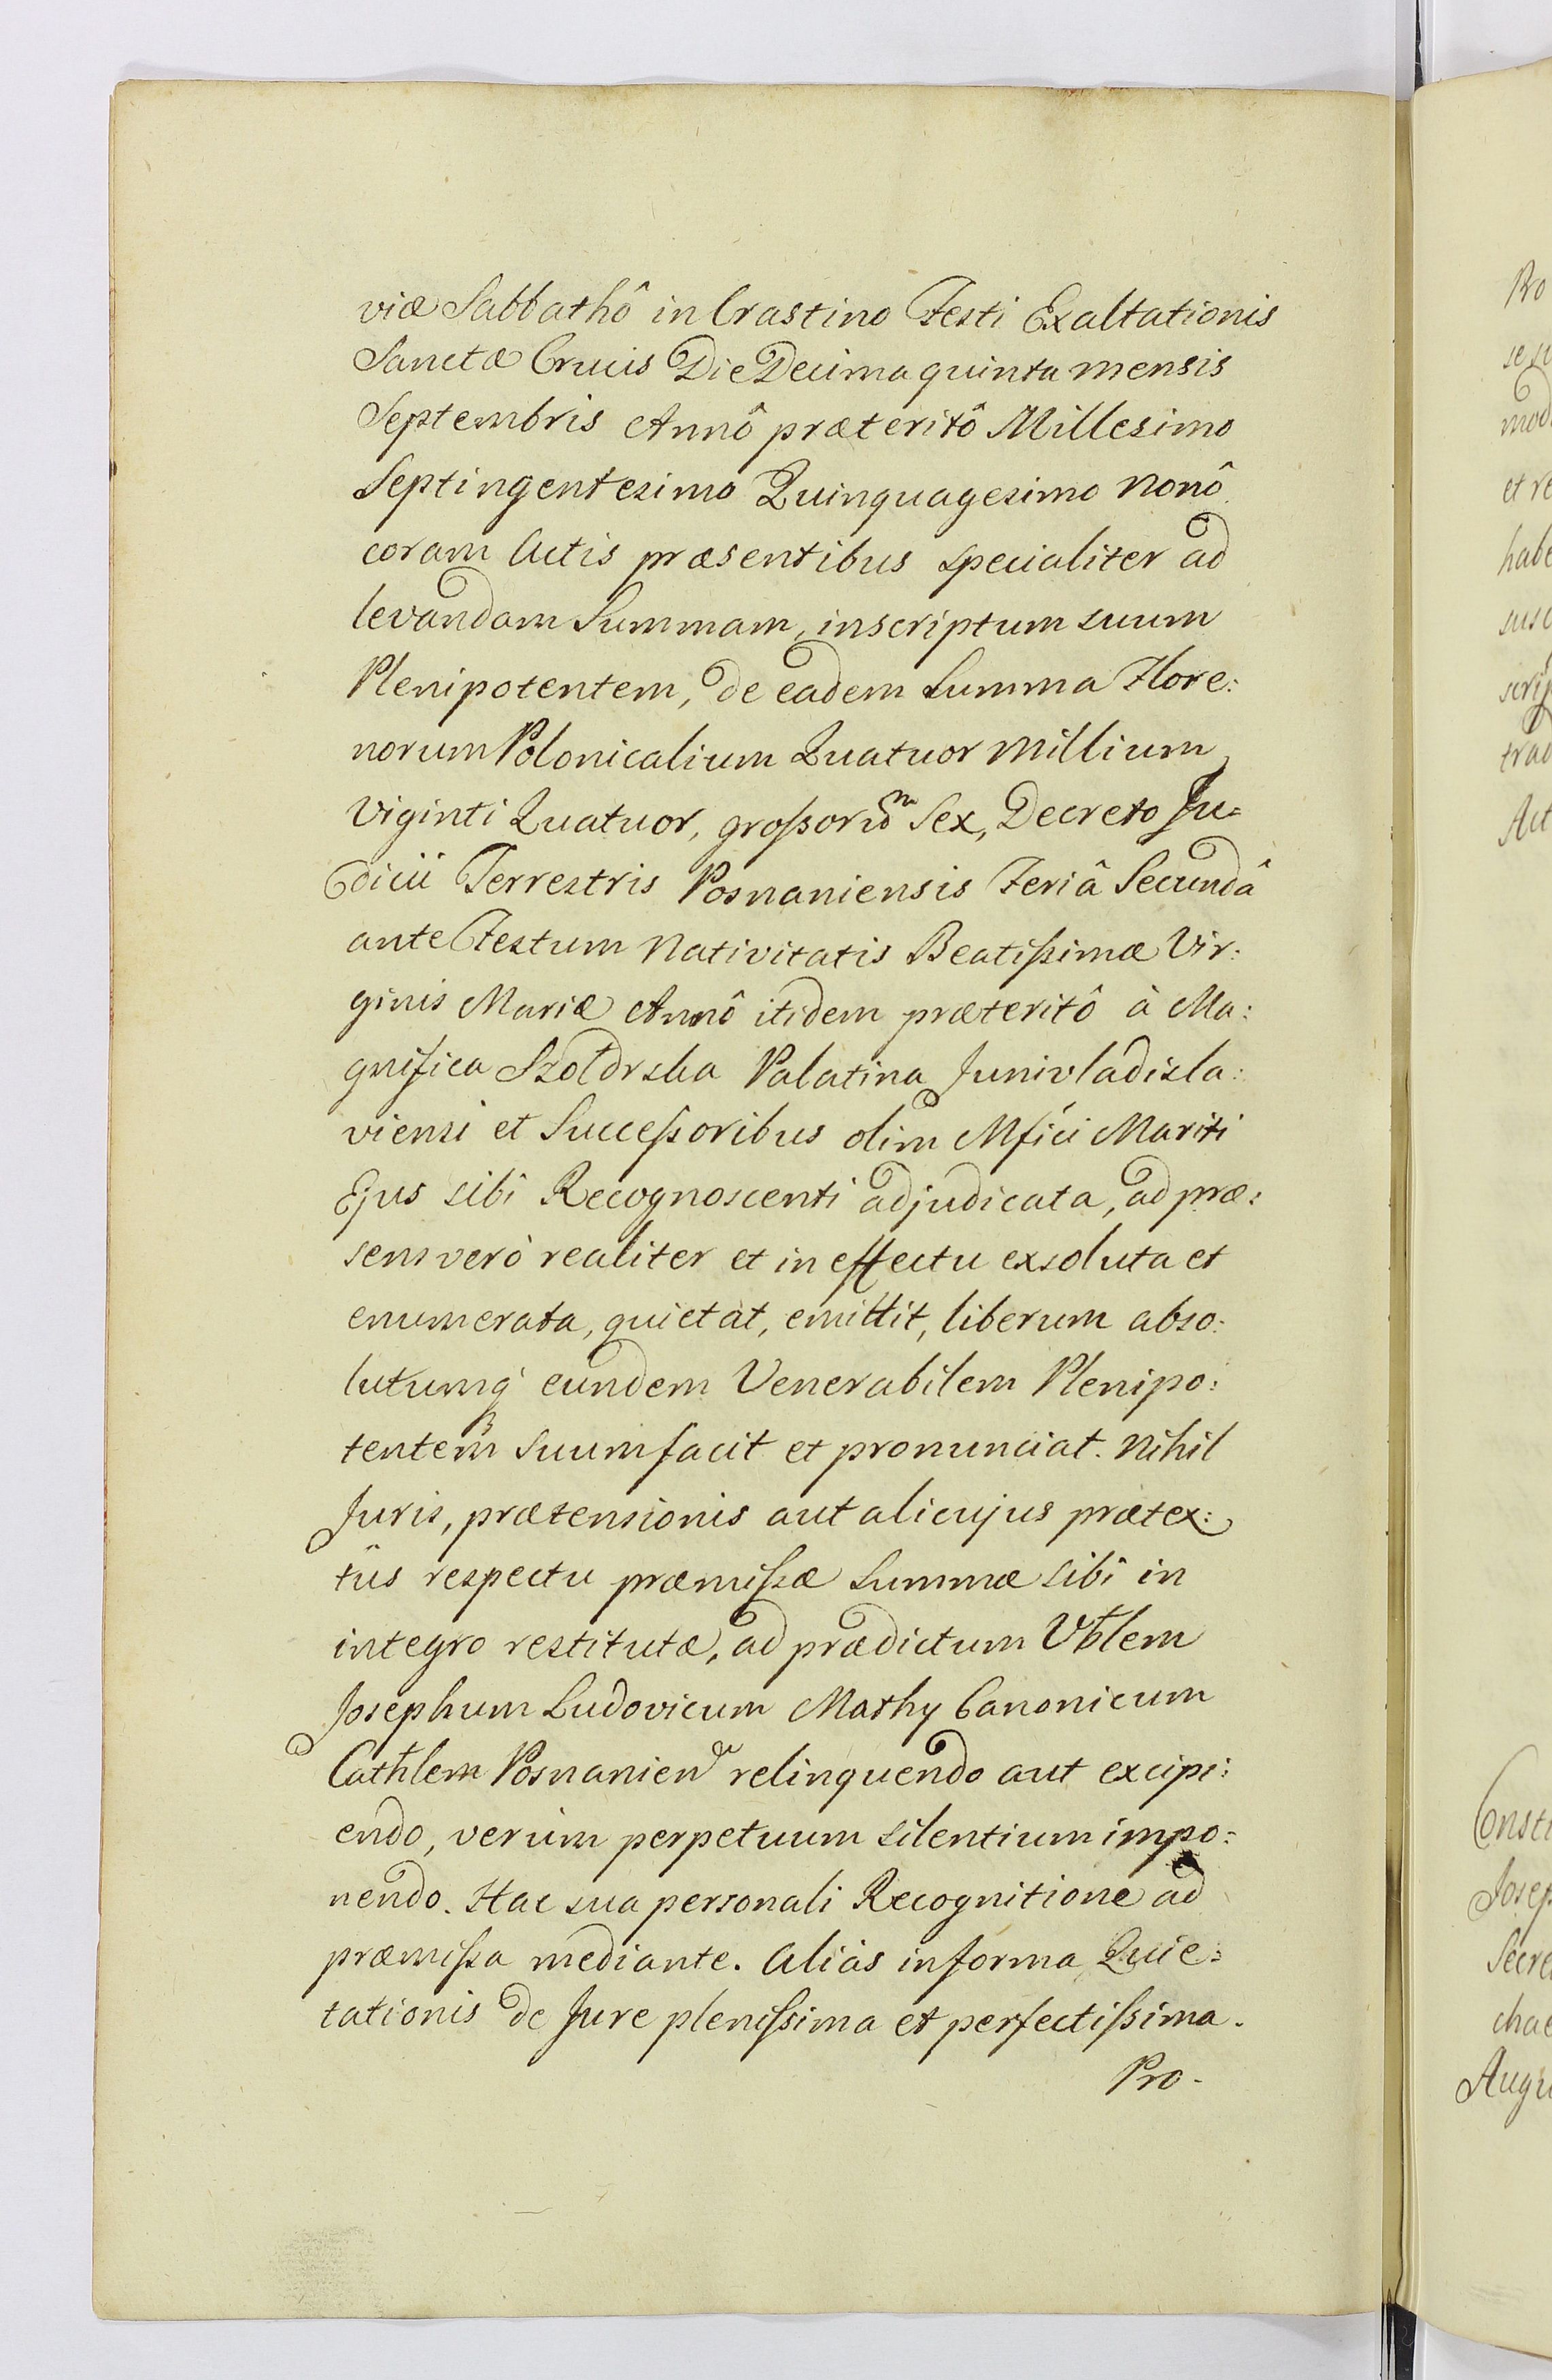 viæ Sabbathô in Crastino Festi Exaltationis
Sanctæ Crucis Die Decima quinta mensis
Septembris Annô præteritô Millesimo
Septingentesimo Quinquagesimo Nonô
coram Actis præsentibus specialiter ad
levandam Summam, inscriptum suum
Plenipotentem, de eadem Summa Flore:
norum Polonicalium Quatuor Millium
Viginti Quatuor, großorum Sex, Decreto Ju=
dicii Terrestris Posnaniensis Feriâ Secundâ
ante Festum Nativitatis Beatißimæ Vir:
ginis Mariæ Annô itidem præteritô à Ma:
gnifica Szołdrska Palatina Junivladisla:
viensi et Succeßoribus olim Mfici Mariti
Ejus sibi Recognoscenti adjudicata, ad præ:
sens verò realiter et in effectu exsoluta et
enumerata, quietat, emittit, liberum abso:
lutumq eundem Venerabilem Plenipo:
tentem suum facit et pronunciat. Nihil
Juris, prætensionis aut alicujus prætex:
tûs respectu præmißæ Summæ sibi in
integro restitutæ, ad prædictum Vblem
Josephum Ludovicum Mathy Canonicum
Cathlem Posnanien relinquendo aut excipi:
endo, verùm perpetuum silentium impo:
nendo. Hac sua personali Recognitione ad
præmißa mediante. Aliàs in forma Quie:
tationis de Jure plenißima et perfectißima.
Pro-
Pro
mod
et re
habe
susc
scrip
trad
Act
Consti
Josep
Secre
chae
Augu